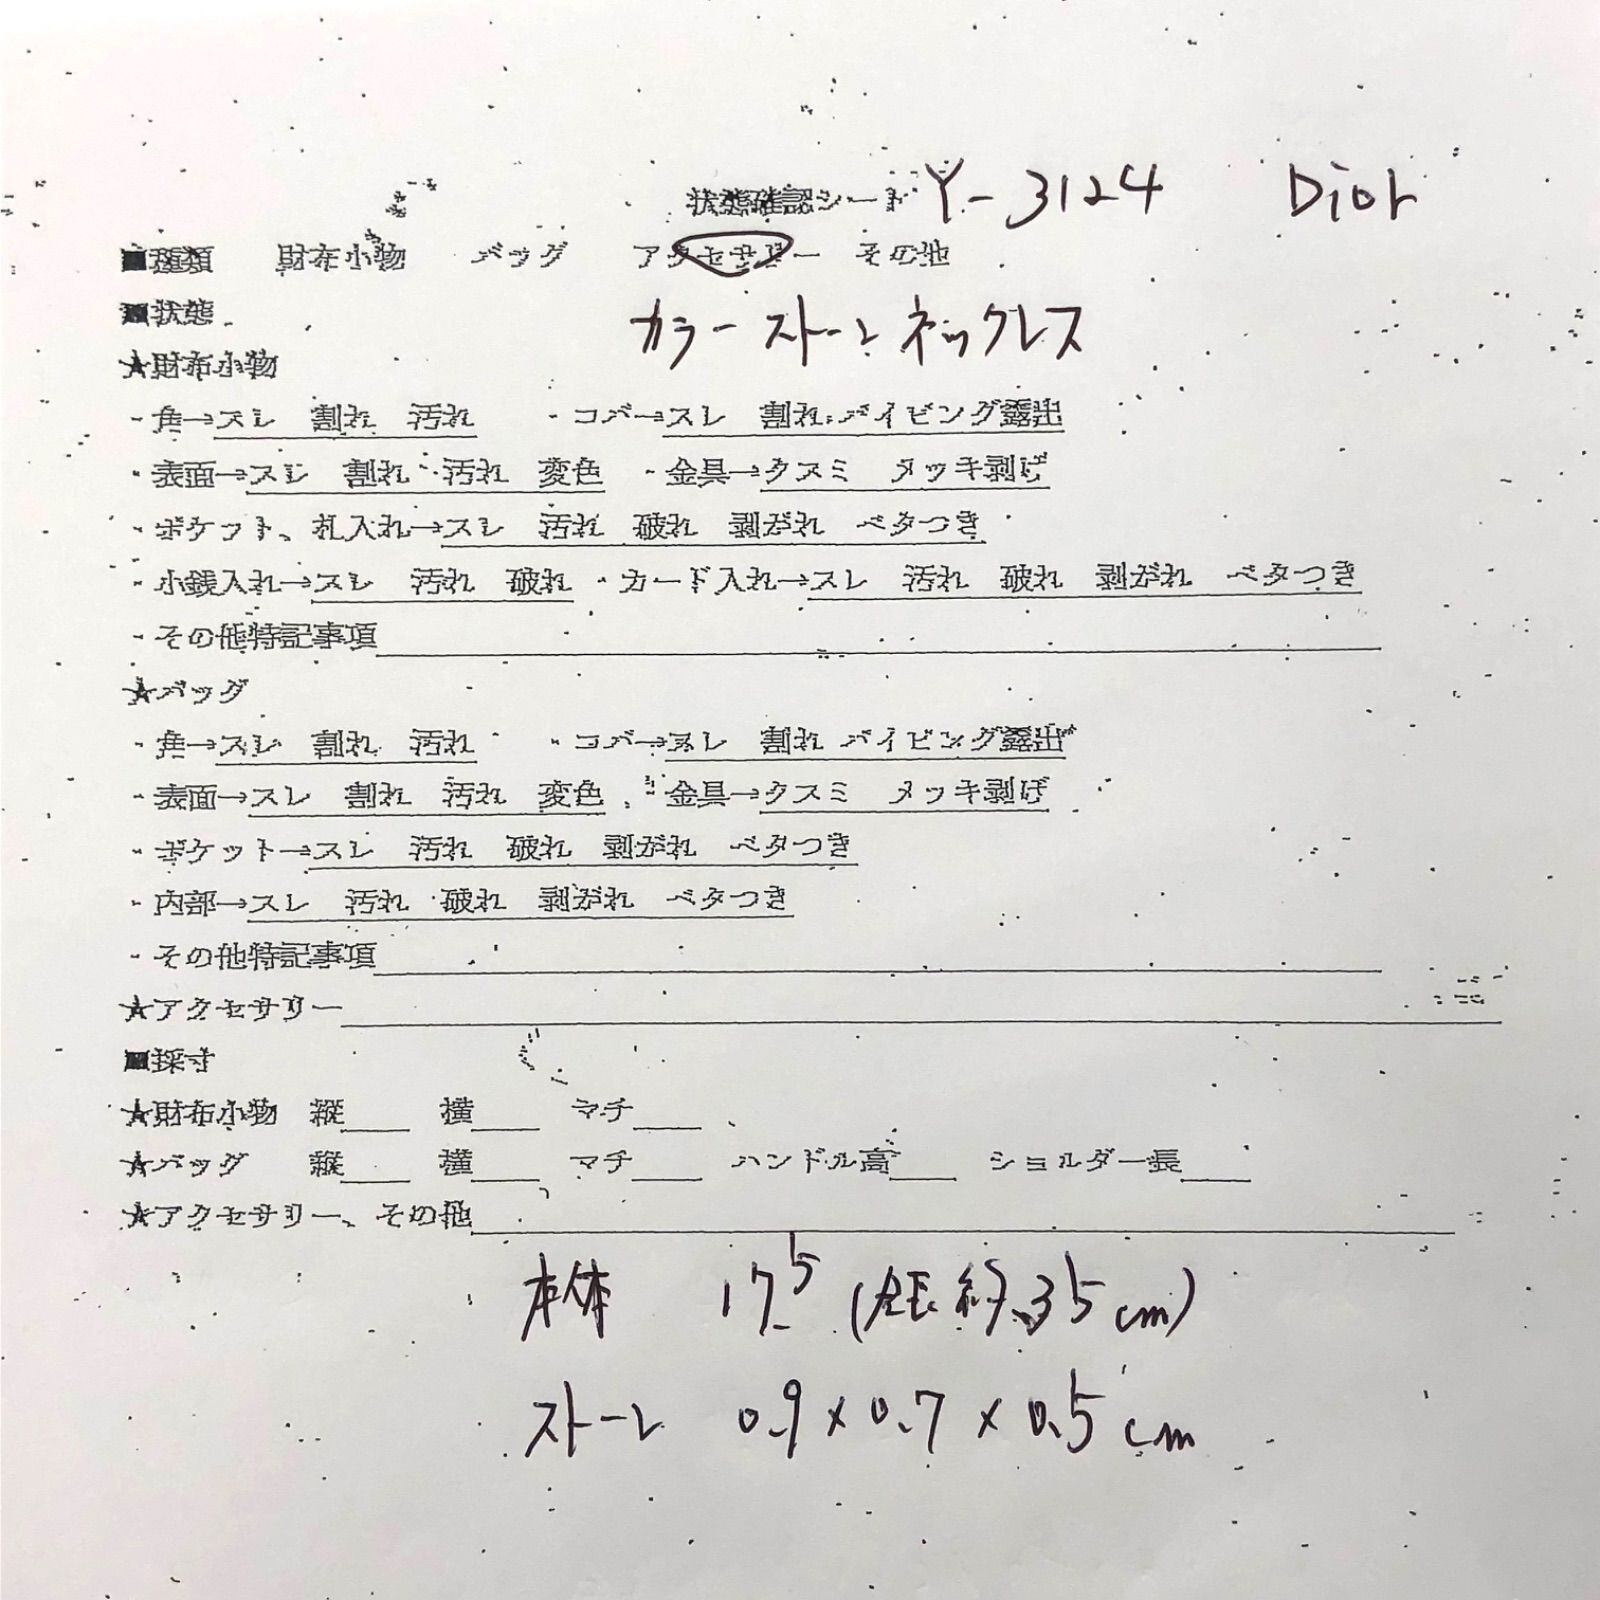 状態確認シート Y-3124 Dior
■種類 財布小物 バッグ アクセサリー その他
■状態 カラーストーンネックレス
★財布小物
・角→スレ 割れ 汚れ ・コバ→スレ 割れ パイピング露出
・表面→スレ 割れ 汚れ 変色 ・金具→クスミ メッキ剥げ
・ポケット、札入れ→スレ 汚れ 破れ 剥がれ ベタつき
・小銭入れ→スレ 汚れ 破れ ・カード入れ→スレ 汚れ 破れ 剥がれ ベタつき
・その他特記事項
★バッグ
・角→スレ 割れ 汚れ ・コバ→スレ 割れ パイピング露出
・表面→スレ 割れ 汚れ 変色 ・金具→クスミ メッキ剥げ
・ポケット→スレ 汚れ 破れ 剥がれ ベタつき
・内部→スレ 汚れ 破れ 剥がれ ベタつき
・その他特記事項
★アクセサリー
■採寸
★財布小物 縦 横 マチ
★バッグ 縦 横 マチ ハンドル高 ショルダー長
★アクセサリー、その他
本体 17.5 (全長約35cm)
ストーン 0.9×0.7×0.5cm